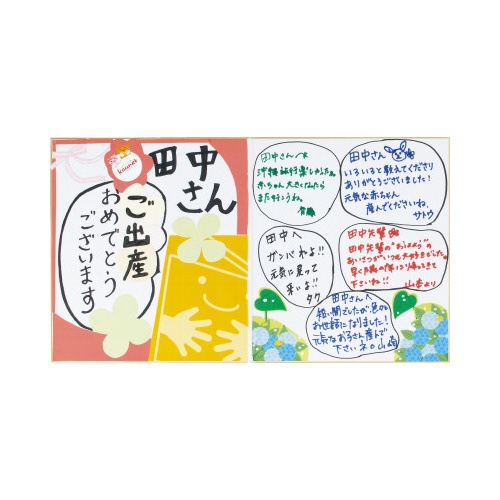 田中
さん
ご出産
おめでとう
ございます
田中さんへ
沖縄旅行楽しかったね
赤ちゃん大きくなったら
また行こうね。
田中さん
いろいろと教えてくださり
ありがとうございました!
元気な赤ちゃん
産んでくださいね。
サトウ
田中へ
ガンバレよ!!
元気に戻って
来いよ!!
タク
田中先輩
田中先輩の"おはよう"の
あいさつがいつも大好きでした。
早く職場に帰ってきて
下さいね!!
山本より
田中さんへ
短い間でしたが、色々
お世話になりました!
元気なお子さん産んで
下さいネ 山崎